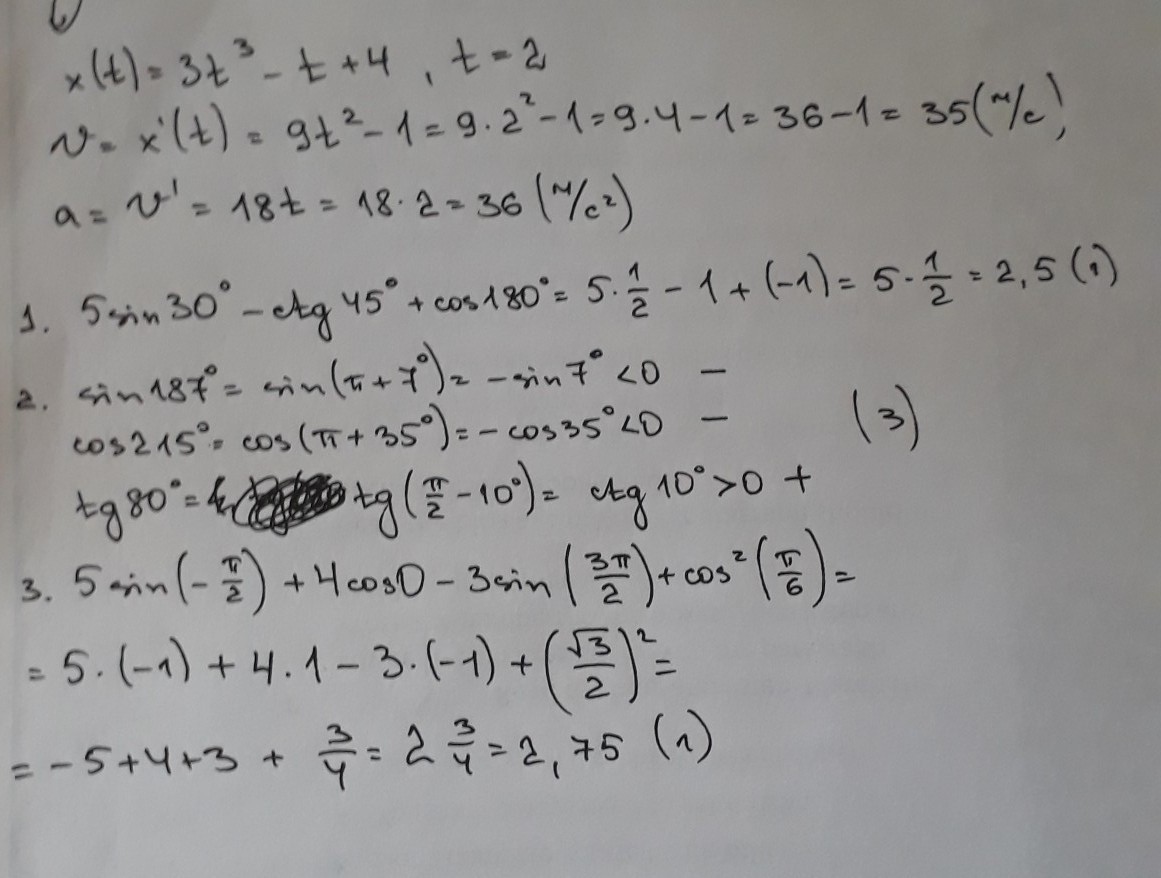 x(t) = 3t³ - t + 4, t = 2
v = x'(t) = 9t² - 1 = 9·2² - 1 = 9·4 - 1 = 36 - 1 = 35 (м/с),
a = v' = 18t = 18·2 = 36 (м/с²)
1. 5 sin 30° - ctg 45° + cos 180° = 5·1/2 - 1 + (-1) = 5·1/2 = 2,5 (1)
2. sin 187° = sin(π + 7°) = - sin 7° < 0 -
cos 215° = cos(π + 35°) = - cos 35° < 0 - (3)
tg 80° = tg(π/2 - 10°) = ctg 10° > 0 +
3. 5 sin(-π/2) + 4 cos 0 - 3 sin(3π/2) + cos²(π/6) =
= 5·(-1) + 4·1 - 3·(-1) + (√3/2)² =
= -5 + 4 + 3 + 3/4 = 2 3/4 = 2,75 (1)